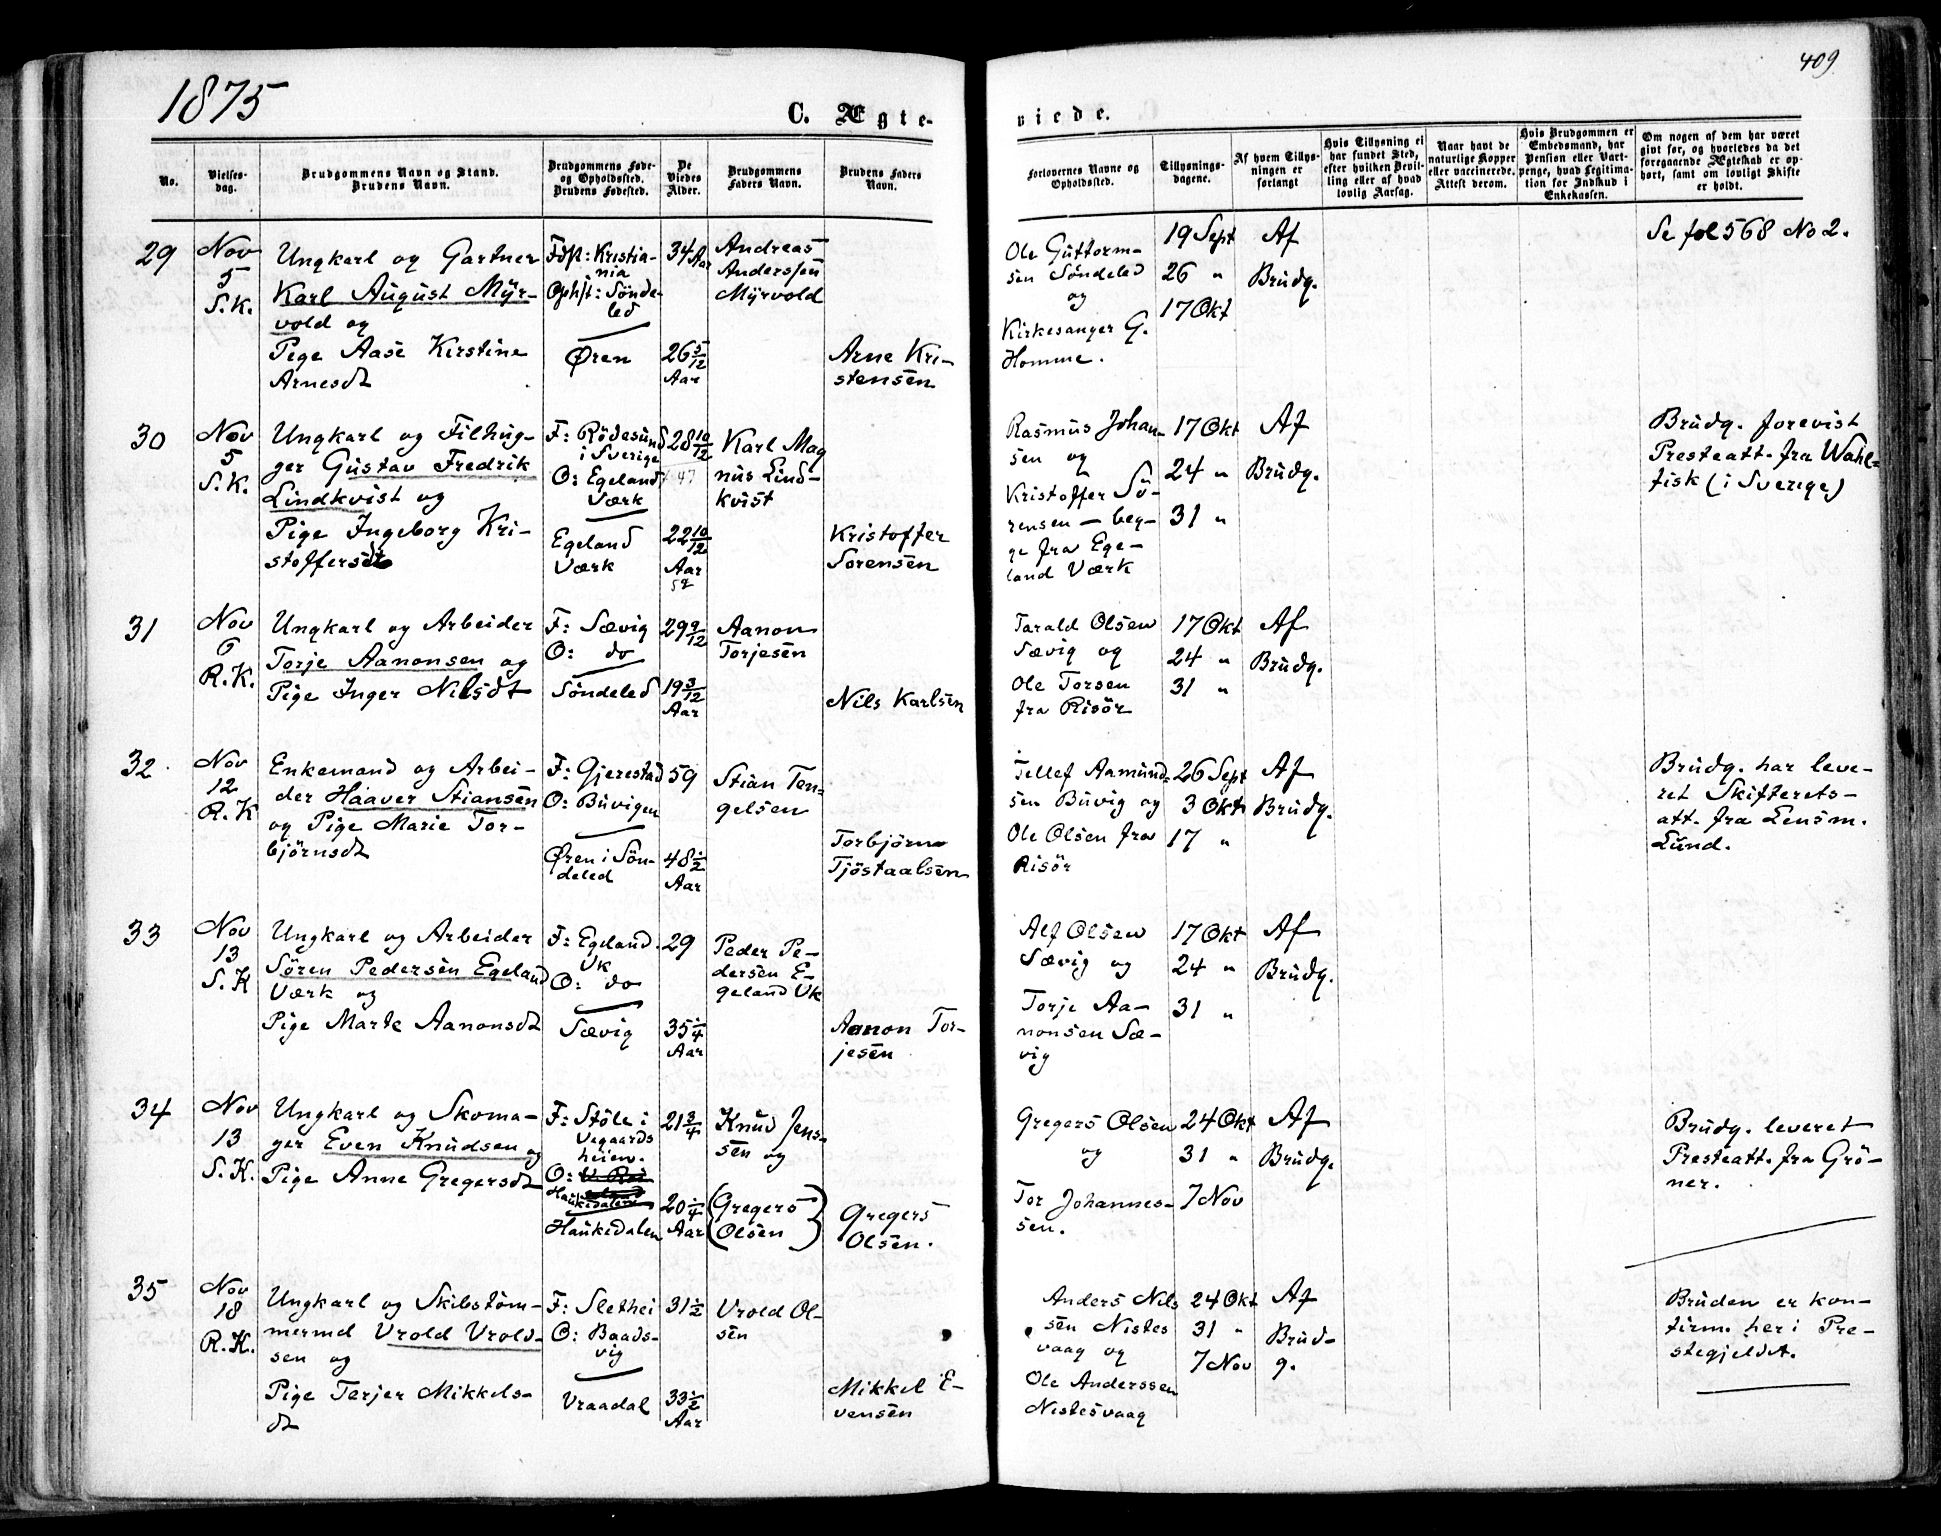 1875
409
C. Ægte-
viede.
No.
Vielses-
dag.
Brudgommens Navn og Stand.
Brudens Navn.
Brudgommens Føde-
og Opholdssted.
Brudens Fødested.
De
Viedes
Alder.
Brudgommens
Faders Navn.
Brudens Faders
Navn.
Forlovernes Navne og
Opholdssted.
Tillysnings-
dagene.
Af hvem Tillys-
ningen er
forlangt
Hvis Tillysning ei
har fundet Sted,
efter hvilken Bevil-
ling eller af hvad
lovlig Aarsag.
Naar havt de
naturlige Kopper
eller vaccinerede.
Attest derom.
Hvis Brudgommen er
Embedsmand, har
Pension eller Vart-
penge, hvad Legitima-
tion for Indskud i
Enkekassen.
Om nogen af dem har været
gift før, og hvorledes da det
foregaaende Ægteskab er op-
hørt, samt om lovligt Skifte
er holdt.
29
Nov
5
S.K.
Ungkarl og Gartner
Karl August Myr-
vold og
Pige Aase Kirstine
Arnesdt
Fdst: Kristia-
nia
Ophst: Sønde-
led
Øren
34 Aar
26 5/12
Aar
Andreas
Anderssen
Myrvold
Arne Kri-
stensen
Ole Guttorm-
sen Søndeled
og
Kirkesanger G.
Homme.
19 Sept
26 "
17 Okt
Af
Brudg.
Se fol 568 No 2.
30
Nov
5
S.K.
Ungkarl og Filhug-
ger Gustav Fredrik
Lindkvist og
Pige Ingeborg Kri-
stoffersdt
F: Rödesund
i Sverige
O: Egeland
Værk
Egeland
Værk
28 10/12
47
22 10/12
Aar
Karl Mag
nus Lind-
kvist
Kristoffer
Sorensen
Rasmus Johan-
sen og
Kristoffer Sö-
rensen - beg-
ge fra Ege-
land Værk
17 Okt
24 "
31 "
Af
Brudg.
Brudg. forevist
Presteatt. fra Wahl-
fisk (i Sverige)
31
Nov
6
R.K.
Ungkarl og Arbeider
Torje Aanonsen og
Pige Inger Nilsdt
F: Sævig
O: do
Söndeled
29 9/12
19 3/12
Aar
Aanon
Torjesen
Nils Karlsen
Tarald Olsen
Sævig og
Ole Torsen
fra Risör
17 Okt
24 "
31 "
Af
Brudg.
32
Nov
12
R.K
Enkemand og Arbei-
der Haaver Stiansen
og Pige Marie Tor-
björnsdt
F: Gjerestad
O: Buvigen
Øren i Sön-
deled
59
48 1/2
Aar
Stian Ten-
gelsen
Torbjörn
Tjöstaalsen
Tellef Aamund-
sen Buvig og
Ole Olsen fra
Risör
26 Sept
3 Okt
17 "
Af
Brudg.
Brudg. har leve-
ret Skifterets-
att. fra Lensm.
Lund.
33
Nov
13
S.K
Ungkarl og Arbeider
Sören Pedersen Egeland
Værk og
Pige Marte Aanonsdt
F: Egeland
Vk
O: do
Sævig
29
35 1/4
Aar
Peder Pe-
dersen E-
geland Vk
Aanon Tor-
jesen
Alf Olsen
Sævig og
Torje Aa-
nonsen Sæ-
vig
17 Okt
24 "
31 "
Af
Brudg.
34
Nov
13
S.K.
Ungkarl og Skoma-
ger Even Knudsen og
Pige Anne Gregersdt
F: Støle i
Vegaards
heien.
O:
Haukedalen
21 3/4
20 1/4
Aar
Knud Jens-
sen og
(Gregers
Olsen)
Gregers
Olsen.
Gregers Olsen
og
Tor Johannes-
sen.
24 Okt
31 "
7 Nov
Af
Brudg.
Brudg. leveret
Presteatt. fra Grö-
ner.
35
Nov
18
R.K.
Ungkarl og Skibstøm-
mermd Vrold Vrold-
sen og
Pige Terjer Mikkels-
dt
F: Slethei
O: Baads-
vig
Vraadal
31 1/2
33 1/2
Aar
Vrold Ol-
sen
Mikkel E-
vensen
Anders Nils
sen Nistes
vaag og
Ole Anderssen
Nistesvaag
24 Okt
31 "
7 Nov
Af
Brud-
g.
Bruden er kon-
firm. her i Pre-
stegjeldet.